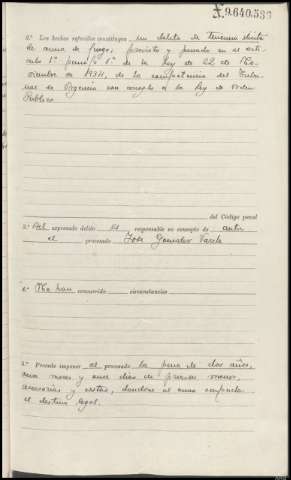 X.9.640.533
2.ª Los hechos referidos constituyen un delito de tenencia ilícita
de arma de fuego, previsto y penado en el artí-
culo 1º párrafo 1º de la Ley de 22 de No-
viembre de 1934, de la competencia del Tribu-
nal de Urgencia con arreglo a la Ley de Orden
Público.
del Código penal
3.ª Del expresado delito es responsable en concepto de autor
el procesado José González Varela
4.ª No han concurrido circunstancias
5.ª Procede imponer al procesado la pena de dos años,
once meses y once días de prisión menor,
accesorias y costas, dándose al arma
el destino legal.